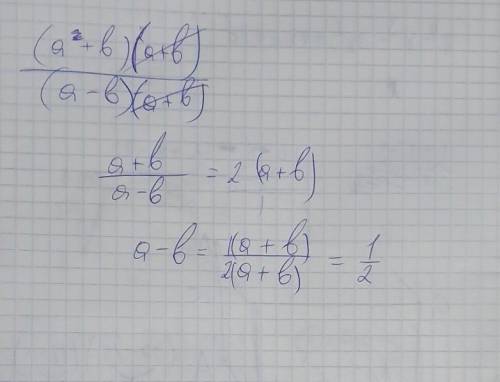 (a² + b)(a+b)
(a - b)(a+b)
a+b
a-b
= 2(a+b)
a-b = 1(a+b)
2(a+b)
= 1
2